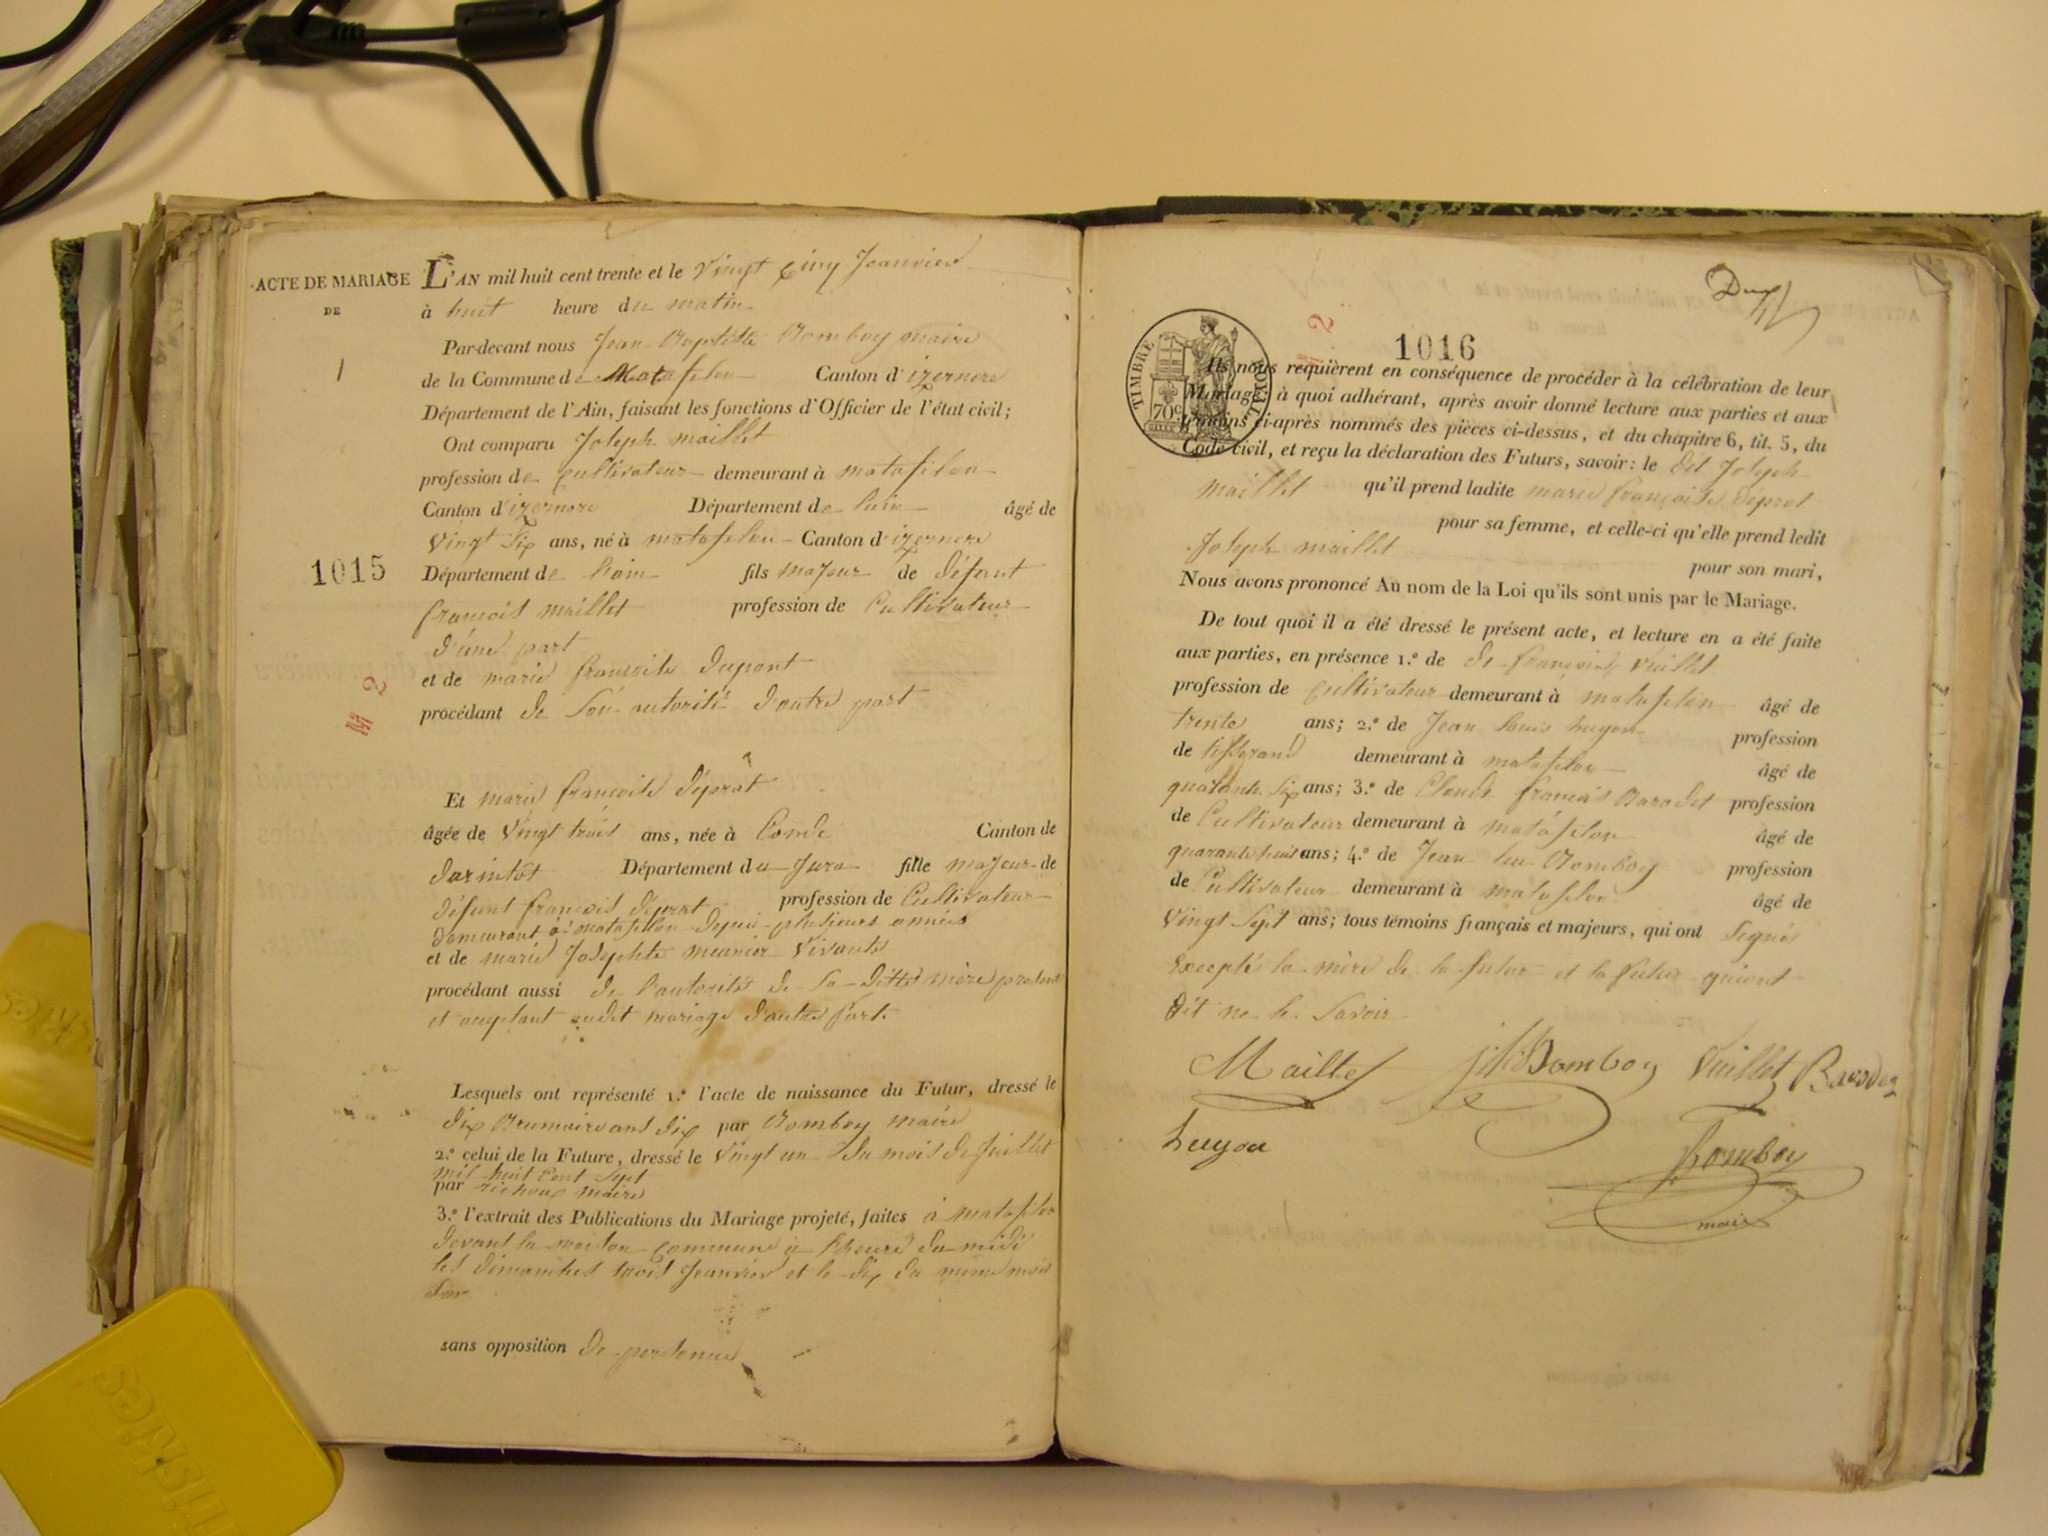 ACTE DE MARIAGE
DE
1
1015
M 2
L'AN mil huit cent trente et le vingt cinq Jeanvier
à huit heure du matin
Par-devant nous Jean Baptiste Bomboy maire
de la Commune de Matafelon Canton d'izernore
Département de l'Ain, faisant les fonctions d'Officier de l'état civil;
Ont comparu Joseph maillet
profession de Cultivateur demeurant à matafelon
Canton d'izernore Département de lain âgé de
vingt six ans, né à matafelon Canton d'izernore
Département de lain fils majeur de défunt
françois maillet profession de Cultivateur
d'une part
et de marie françoise dupont
procédant de son autorité d'autre part
Et marie françoise déprat
âgée de vingt trois ans, née à Conde Canton de
darintot Département du Jura fille majeur de
défunt françois déprat profession de Cultivateur
demeurant à matafelon depuis plusieurs années
et de marie Josephte meunier vivante
procédant aussi de l'autorité de sa ditte mère
et audit mariage d'autre part.
Lesquels ont représenté 1.° l'acte de naissance du Futur, dressé le
dix Brumaire ans dix par Bomboy maire
2.° celui de la Future, dressé le vingt un du mois de Juillet
mil huit Cent sept
par maire
3.° l'extrait des Publications du Mariage projeté, faites à matafelon
devant la maison commune à l'heure du midi
les dimanches trois Jeanvier et le dix du meme mois
sans opposition de personne
1016
M 2
TIMBRE ROYAL
70c
Ils nous requièrent en conséquence de procéder à la célébration de leur
Mariage, à quoi adhérant, après avoir donné lecture aux parties et aux
témoins ci-après nommés des pièces ci-dessus, et du chapitre 6, tit. 5, du
Code civil, et reçu la déclaration des Futurs, savoir: le dit Joseph
maillet qu'il prend ladite marie françoise déprat
pour sa femme, et celle-ci qu'elle prend ledit
Joseph maillet
pour son mari,
Nous avons prononcé Au nom de la Loi qu'ils sont unis par le Mariage.
De tout quoi il a été dressé le présent acte, et lecture en a été faite
aux parties, en présence 1.° de de françois vuillet
profession de cultivateur demeurant à matafelon âgé de
trente ans; 2.° de Jean louis huyou profession
de tisserand demeurant à matafelon âgé de
quarante six ans; 3.° de Claude françois Barodet profession
de Cultivateur demeurant à matafelon âgé de
quarante huit ans; 4.° de Jean Bomboy profession
de Cultivateur demeurant à matafelon âgé de
vingt sept ans; tous témoins français et majeurs, qui ont signés
Exceptés la mère de la futur et la futur quiont
dit ne le savoir
Maillet Bomboy Vuillet Barodet
huyou
Bomboy
maire